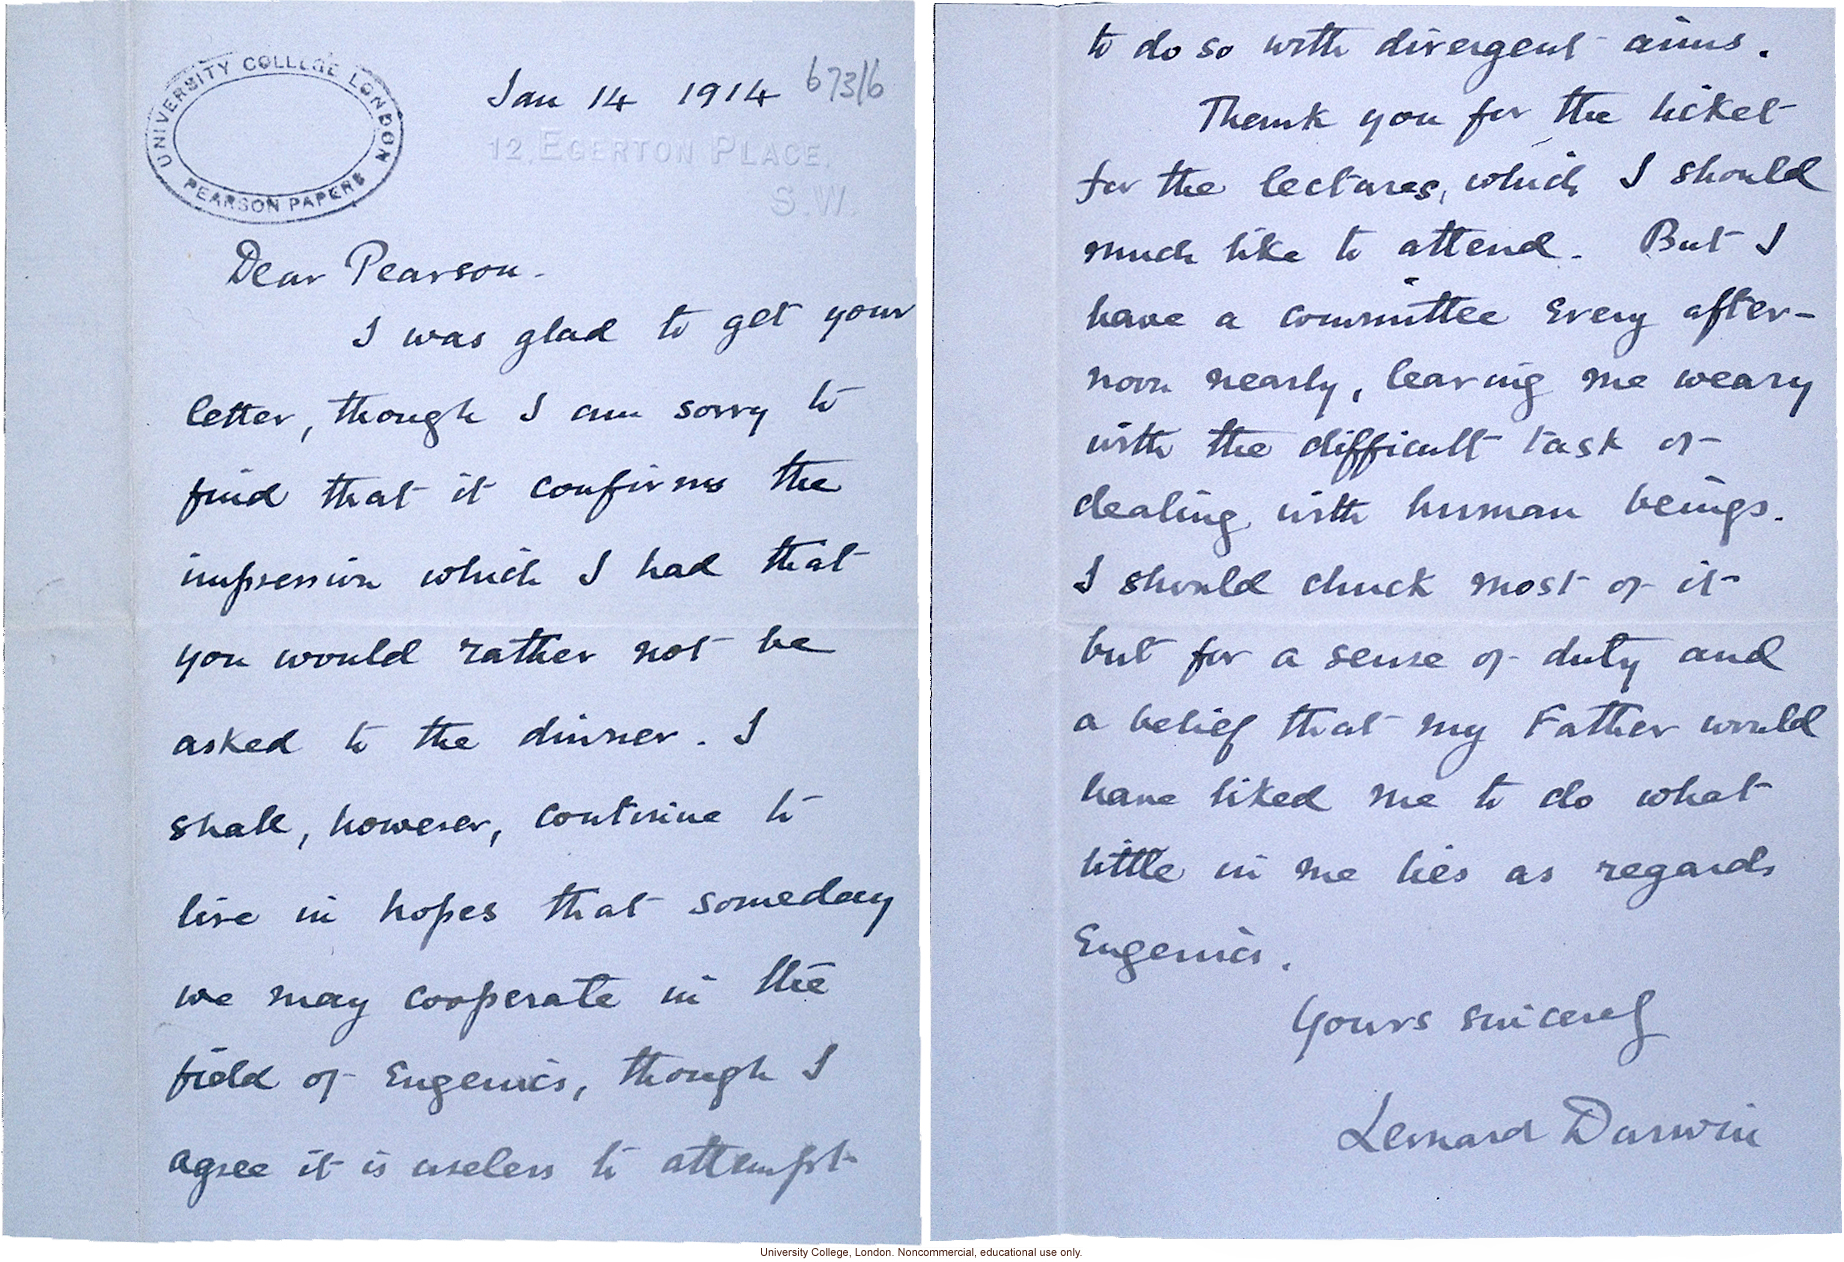 UNIVERSITY COLLEGE LONDON
PEARSON PAPERS
Jan 14 1914
673/6
12, EGERTON PLACE,
S.W.
Dear Pearson.
I was glad to get your
letter, though I am sorry to
find that it confirms the
impression which I had that
you would rather not be
asked to the dinner. I
shall, however, continue to
live in hopes that someday
we may cooperate in the
field of Eugenics, though I
agree it is useless to attempt
to do so with divergent aims.
Thank you for the ticket
for the lectures, which I should
much like to attend. But I
have a committee every after-
noon nearly, leaving me weary
with the difficult task of
dealing with human beings.
I should chuck most of it
but for a sense of duty and
a belief that my Father would
have liked me to do what
little in me lies as regards
Eugenics.
Yours sincerely
Leonard Darwin
University College, London. Noncommercial, educational use only.